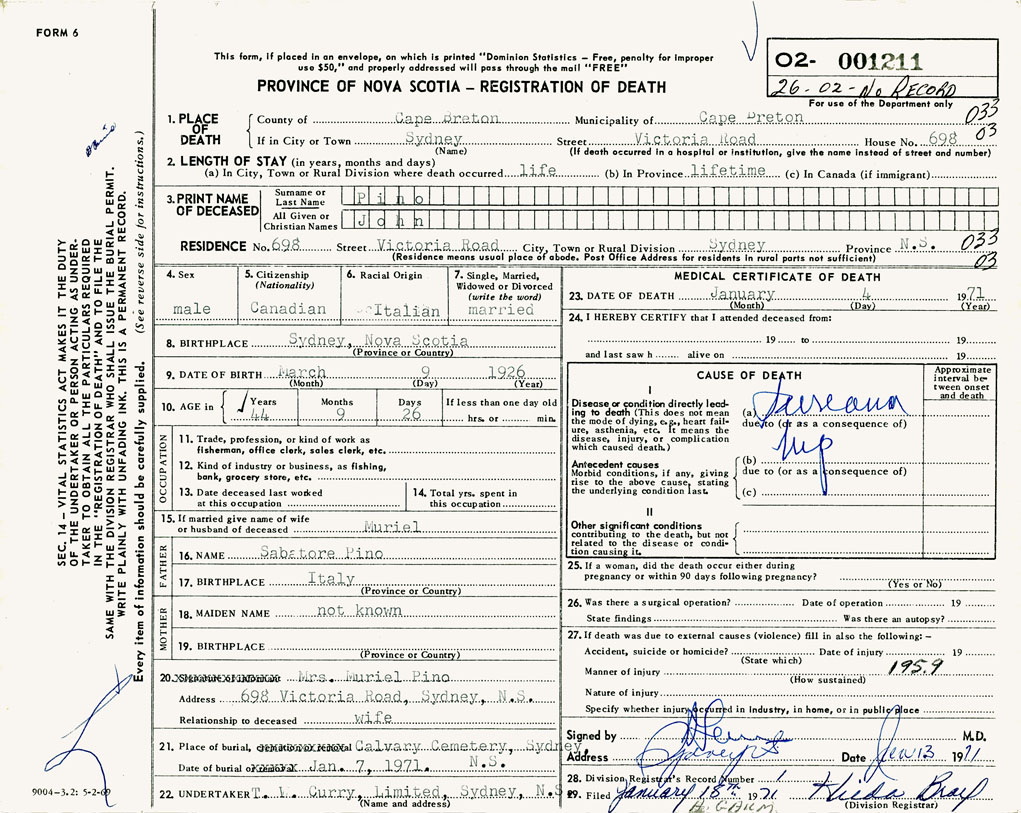 FORM 6
This form, if placed in an envelope, on which is printed "Dominion Statistics – Free, penalty for improper
use $50," and properly addressed will pass through the mail "FREE"
PROVINCE OF NOVA SCOTIA – REGISTRATION OF DEATH
02- 001211
26-02-No RECORD
For use of the Department only
SEC. 14 – VITAL STATISTICS ACT MAKES IT THE DUTY
OF THE UNDERTAKER OR PERSON ACTING AS UNDER-
TAKER TO OBTAIN ALL THE PARTICULARS REQUIRED
IN THE "REGISTRATION OF DEATH" AND TO FILE THE
SAME WITH THE DIVISION REGISTRAR WHO SHALL ISSUE THE BURIAL PERMIT.
WRITE PLAINLY WITH UNFADING INK. THIS IS A PERMANENT RECORD.
Every item of information should be carefully supplied. (See reverse side for instructions.)
1. PLACE OF DEATH
County of Cape Breton Municipality of Cape Breton 033
If in City or Town Sydney Street Victoria Road House No. 698 03
(Name) (If death occurred in a hospital or institution, give the name instead of street and number)
2. LENGTH OF STAY (in years, months and days)
(a) In City, Town or Rural Division where death occurred life (b) In Province lifetime (c) In Canada (if immigrant)
3. PRINT NAME OF DECEASED
Surname or Last Name Pino
All Given or Christian Names John
RESIDENCE No. 698 Street Victoria Road City, Town or Rural Division Sydney Province N.S. 033
(Residence means usual place of abode. Post Office Address for residents in rural parts not sufficient) 03
4. Sex
male
5. Citizenship
(Nationality)
Canadian
6. Racial Origin
Italian
7. Single, Married,
Widowed or Divorced
(write the word)
married
8. BIRTHPLACE Sydney, Nova Scotia
(Province or Country)
9. DATE OF BIRTH March 9 1926
(Month) (Day) (Year)
10. AGE in Years Months Days If less than one day old
44 9 26 hrs. or min.
OCCUPATION
11. Trade, profession, or kind of work as
fisherman, office clerk, sales clerk, etc.
12. Kind of industry or business, as fishing,
bank, grocery store, etc.
13. Date deceased last worked
at this occupation
14. Total yrs. spent in
this occupation
15. If married give name of wife
or husband of deceased Muriel
FATHER
16. NAME Sabatore Pino
17. BIRTHPLACE Italy
(Province or Country)
MOTHER
18. MAIDEN NAME not known
19. BIRTHPLACE
(Province or Country)
20. Signature of informant Mrs. Muriel Pino
Address 698 Victoria Road, Sydney, N.S.
Relationship to deceased wife
21. Place of burial, cremation or removal Calvary Cemetery, Sydney,
Date of burial or removal Jan. 7, 1971. N.S.
22. UNDERTAKER T. W. Curry, Limited, Sydney, N.S.
(Name and address)
9004-3.2: 5-2-69
MEDICAL CERTIFICATE OF DEATH
23. DATE OF DEATH January 4 1971
(Month) (Day) (Year)
24. I HEREBY CERTIFY that I attended deceased from:
19 to 19
and last saw h alive on 19
CAUSE OF DEATH
Approximate
interval be-
tween onset
and death
I
Disease or condition directly lead-
ing to death (This does not mean
the mode of dying, e.g., heart fail-
ure, asthenia, etc. It means the
disease, injury, or complication
which caused death.)
(a)
due to (or as a consequence of)
Antecedent causes
Morbid conditions, if any, giving
rise to the above cause, stating
the underlying condition last.
(b)
due to (or as a consequence of)
(c)
II
Other significant conditions
contributing to the death, but not
related to the disease or condi-
tion causing it.
25. If a woman, did the death occur either during
pregnancy or within 90 days following pregnancy?
(Yes or No)
26. Was there a surgical operation? Date of operation 19
State findings Was there an autopsy?
27. If death was due to external causes (violence) fill in also the following: –
Accident, suicide or homicide? Date of injury 19
(State which)
Manner of injury 195.9
(How sustained)
Nature of injury
Specify whether injury occurred in industry, in home, or in public place
Signed by M.D.
Address Sydney N S Date Jan 13 1971
28. Division Registrar's Record Number 1
29. Filed January 18th 1971 Hilda Bray
(Division Registrar)